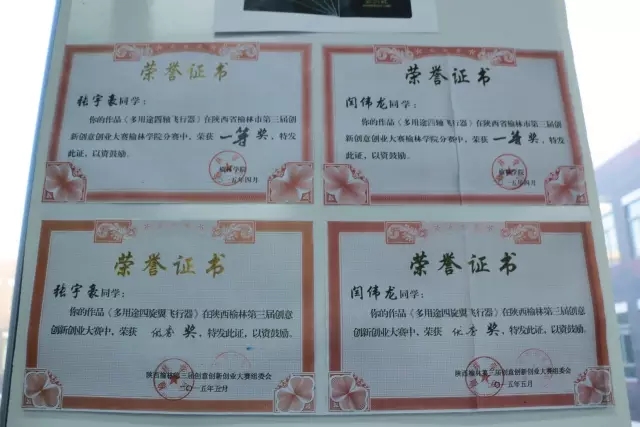 荣誉证书
张宇豪同学：
你的作品《多用途四轴飞行器》在陕西省榆林市第三届创
新创意创业大赛榆林学院分赛中，荣获 一等奖，特发
此证，以资鼓励。
榆林学院
一五年四月
荣誉证书
闫伟龙同学：
你的作品《多用途四轴飞行器》在陕西省榆林市第三届创
新创意创业大赛榆林学院分赛中，荣获 一等奖，特发
此证，以资鼓励。
榆林学院
一五年四月
荣誉证书
张宇豪同学：
你的作品《多用途四旋翼飞行器》在陕西榆林第三届创意
创新创业大赛中，荣获 优秀 奖，特发此证，以资鼓励。
陕西榆林第三届创意创新创业大赛组委会
二〇一五年五月
荣誉证书
闫伟龙同学：
你的作品《多用途四旋翼飞行器》在陕西榆林第三届创意
创新创业大赛中，荣获 优秀 奖，特发此证，以资鼓励。
陕西榆林第三届创意创新创业大赛组委会
二〇一五年五月